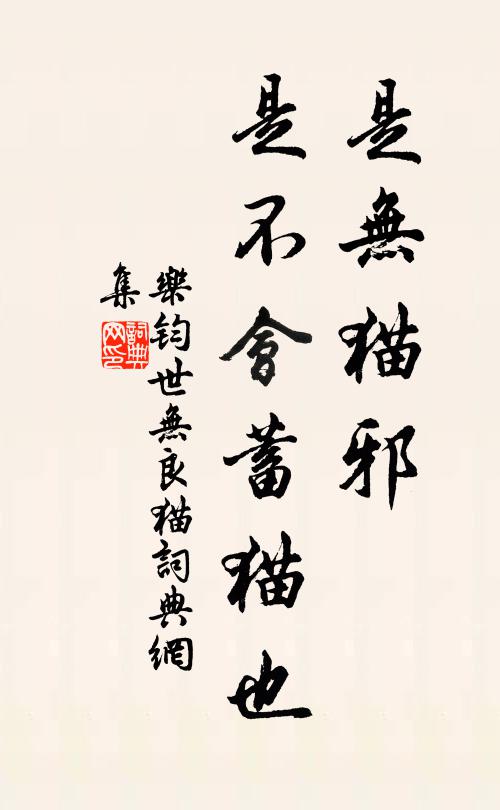 是無猫邪
是不會蓄猫也
樂鈞世無良猫詞典網
集
詞典
网印